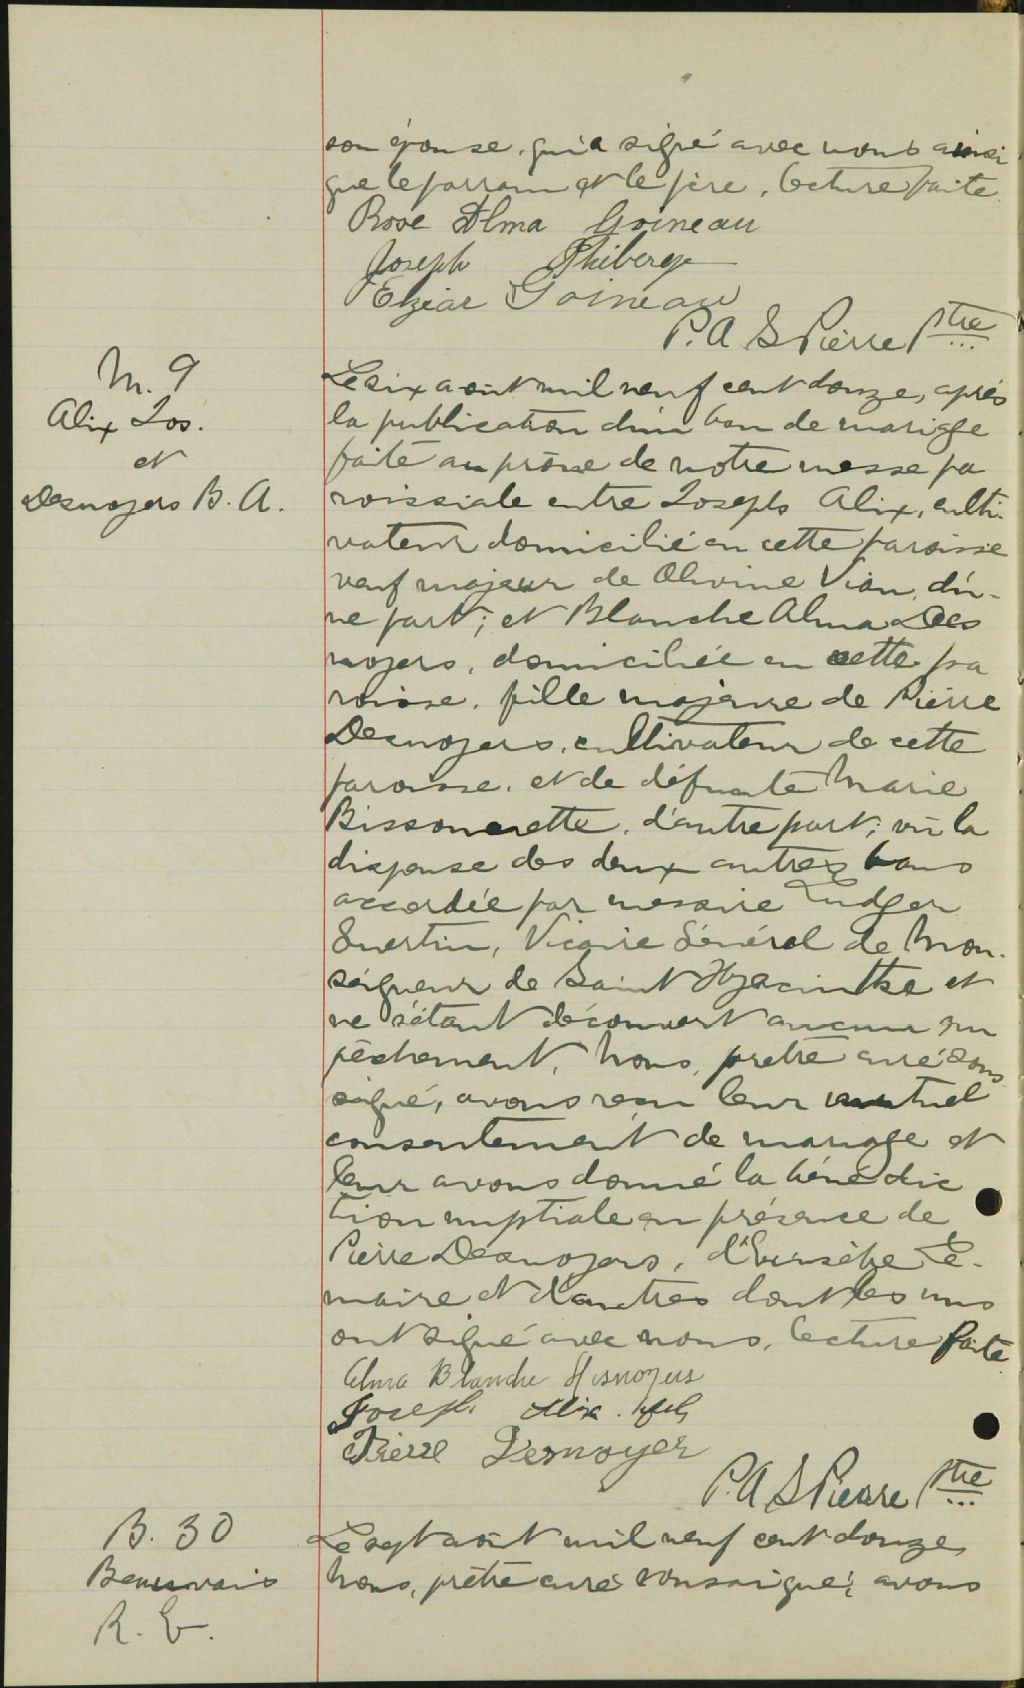 son épouse, qui a signé avec nous ainsi
que le parrain et le père, lecture faite.
Rose Alma Goineau
Joseph Thiberge
Elzéar Goineau
P. A. S Pierre Ptre
M. 9
Alix Jos.
et
Desnoyers B. A.
Le six août mil neuf cent douze, après
la publication d'un ban de mariage
faite au prône de notre messe pa
roissiale entre Joseph Alix, culti-
vateur domicilié en cette paroisse
veuf majeur de Olivine Viau, d'u-
ne part; et Blanche Alma Des
noyers, domiciliée en cette pa
roisse, fille majeure de Pierre
Desnoyers, cultivateur de cette
paroisse, et de défunte Marie
Bissonnette, d'autre part; vu la
dispense des deux autres bans
accordée par messire Ludger
Guertin, Vicaire Général de Mon-
seigneur de Saint Hyacinthe et
ne s'étant découvert aucun em
pêchement, Nous, prêtre curé sous
signé, avons reçu leur mutuel
consentement de mariage et
leur avons donné la bénédic
tion nuptiale en présence de
Pierre Desnoyers, d'Eusèbe Le-
maire et d'autres dont les uns
ont signé avec nous, lecture faite.
Alma Blanche Desnoyers
Joseph Alix
Pierre Desnoyer
P. A. S Pierre Ptre
B. 30
Beauvais
R. E.
Le sept août mil neuf cent douze,
Nous, prêtre curé soussigné, avons